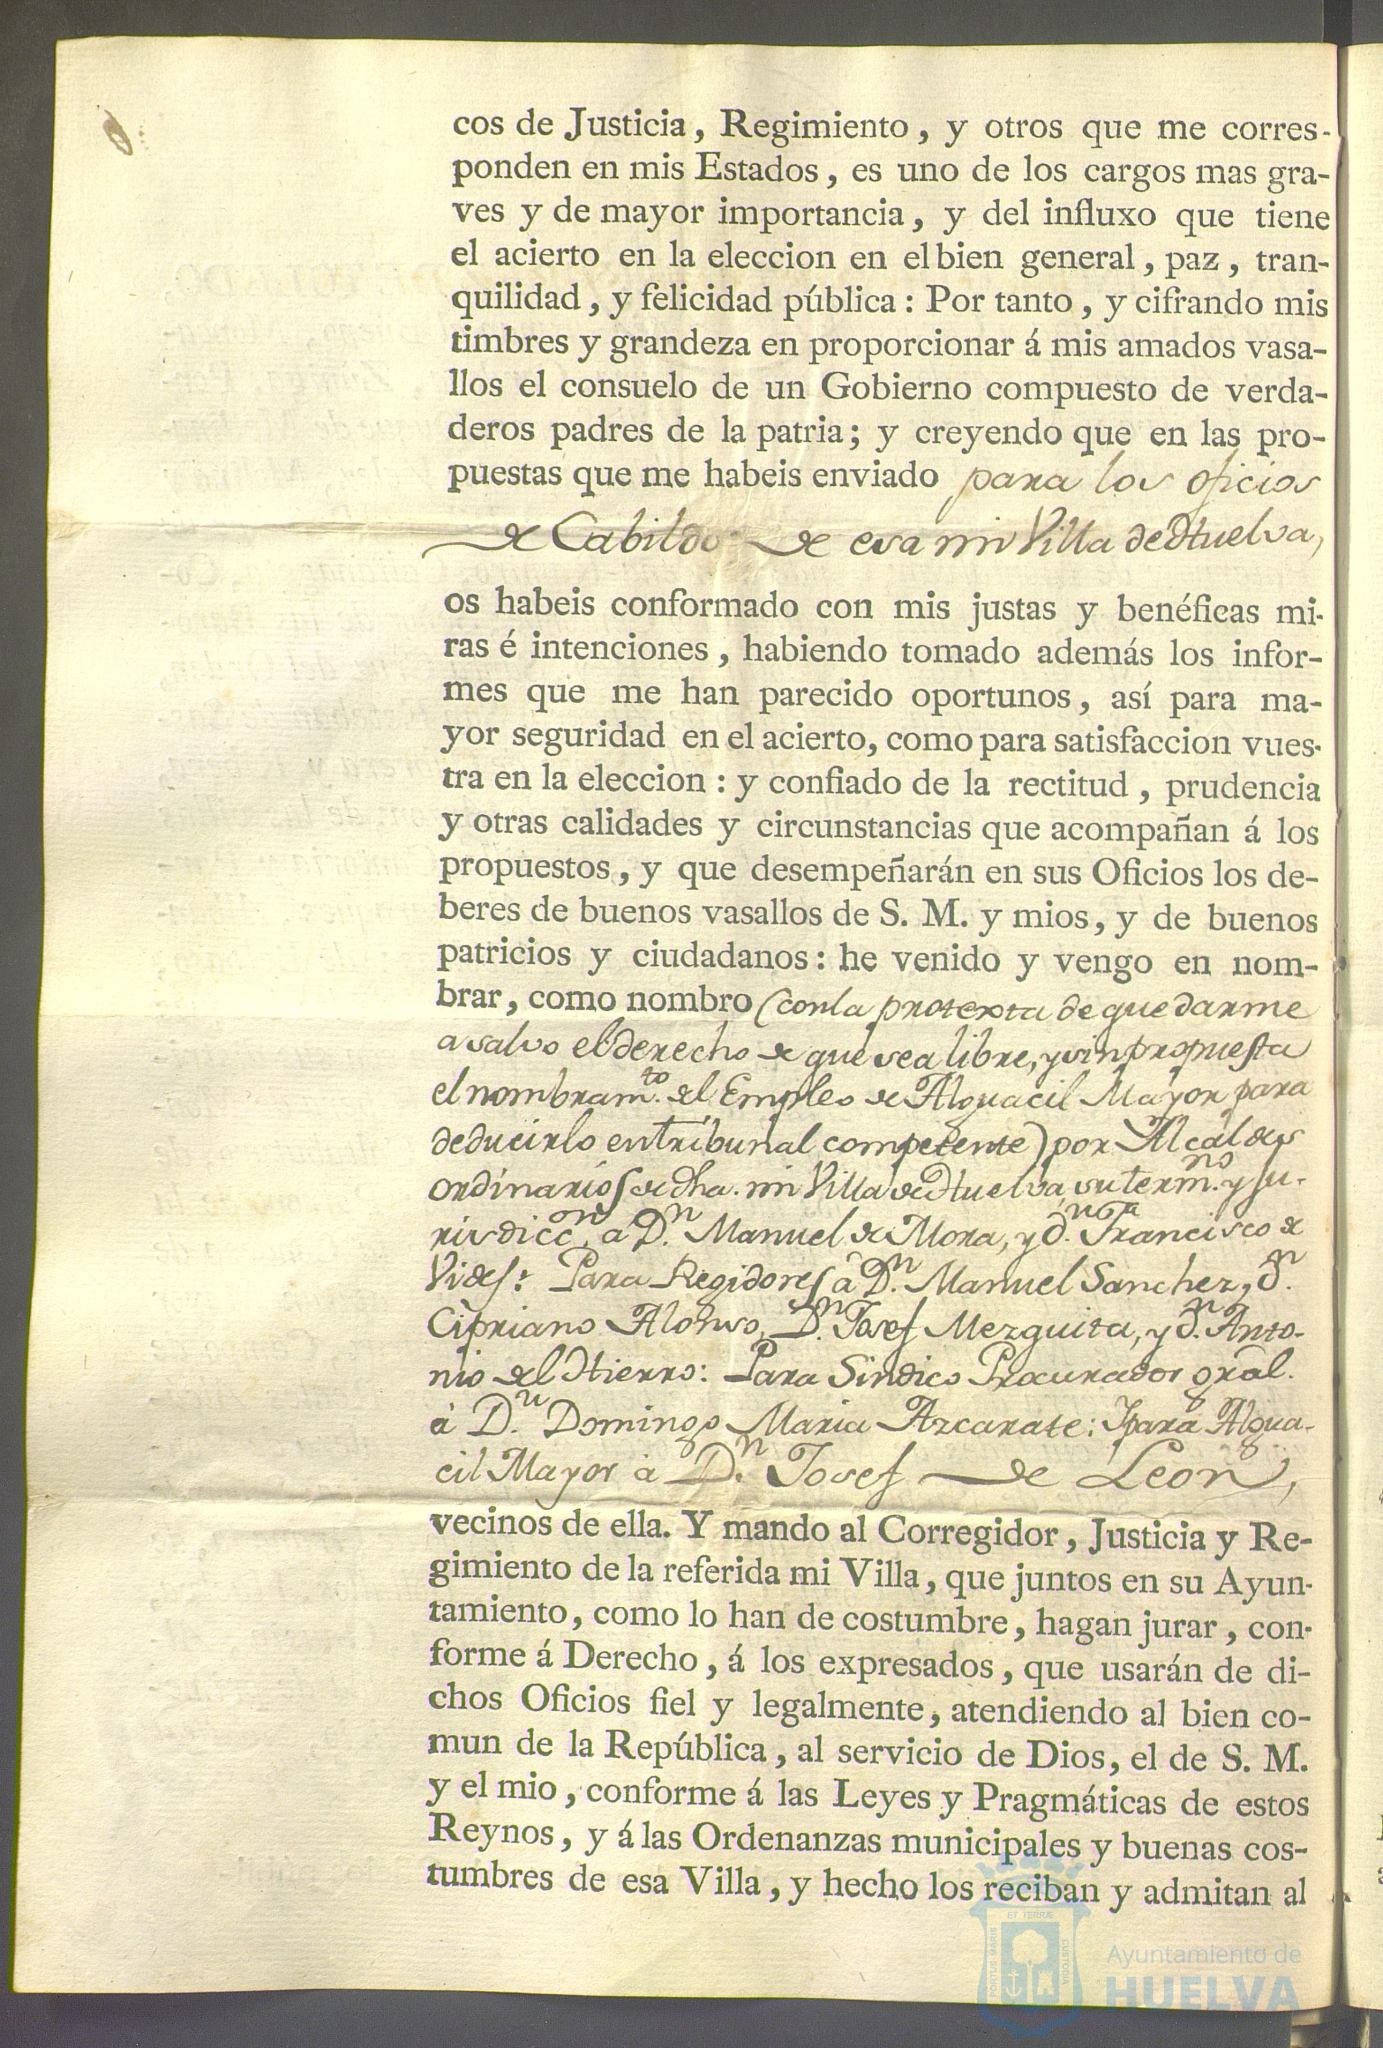 cos de Justicia, Regimiento, y otros que me corres-
ponden en mis Estados, es uno de los cargos mas gra-
ves y de mayor importancia, y del influxo que tiene
el acierto en la eleccion en el bien general, paz, tran-
quilidad, y felicidad pública: Por tanto, y cifrando mis
timbres y grandeza en proporcionar á mis amados vasa-
llos el consuelo de un Gobierno compuesto de verda-
deros padres de la patria; y creyendo que en las pro-
puestas que me habeis enviado para los oficios
de Cabildo de esa mi Villa de Huelva,
os habeis conformado con mis justas y benéficas mi-
ras é intenciones, habiendo tomado además los infor-
mes que me han parecido oportunos, así para ma-
yor seguridad en el acierto, como para satisfaccion vues-
tra en la eleccion: y confiado de la rectitud, prudencia
y otras calidades y circunstancias que acompañan á los
propuestos, y que desempeñarán en sus Oficios los de-
beres de buenos vasallos de S. M. y mios, y de buenos
patricios y ciudadanos: he venido y vengo en nom-
brar, como nombro (con la protexta de quedarme
a salvo el derecho de que sea libre, y sin propuesta
el nombram.to del Empleo de Alguacil Mayor para
deducirlo en tribunal competente) por Alcaldes
ordinarios de dha. mi Villa de Huelva, su term.no y ju-
risdicc.on a D.n Manuel de Mora, y d.n Francisco de
Vides: Para Regidores à D.n Manuel Sanchez, d.n
Cipriano Alonso, D.n Josef Mezquita, y d.n Anto-
nio del Hierro: Para Sindico Procurador gral.
à D.n Domingo Maria Azcarate: Y para Algua-
cil Mayor à D.n Josef de Leon,
vecinos de ella. Y mando al Corregidor, Justicia y Re-
gimiento de la referida mi Villa, que juntos en su Ayun-
tamiento, como lo han de costumbre, hagan jurar, con-
forme á Derecho, á los expresados, que usarán de di-
chos Oficios fiel y legalmente, atendiendo al bien co-
mun de la República, al servicio de Dios, el de S. M.
y el mio, conforme á las Leyes y Pragmáticas de estos
Reynos, y á las Ordenanzas municipales y buenas cos-
tumbres de esa Villa, y hecho los reciban y admitan al
PORTUS MARIS ET TERRÆ CUSTODIA
Ayuntamiento de
HUELVA